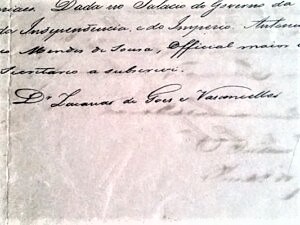 Dada no Palacio do Governo da
Independencia, e do Imperio. Antonio
Mendes de Sousa, Official maior
Secretario a subscrevi.
Dr Zacarias de Goes e Vasconcellos